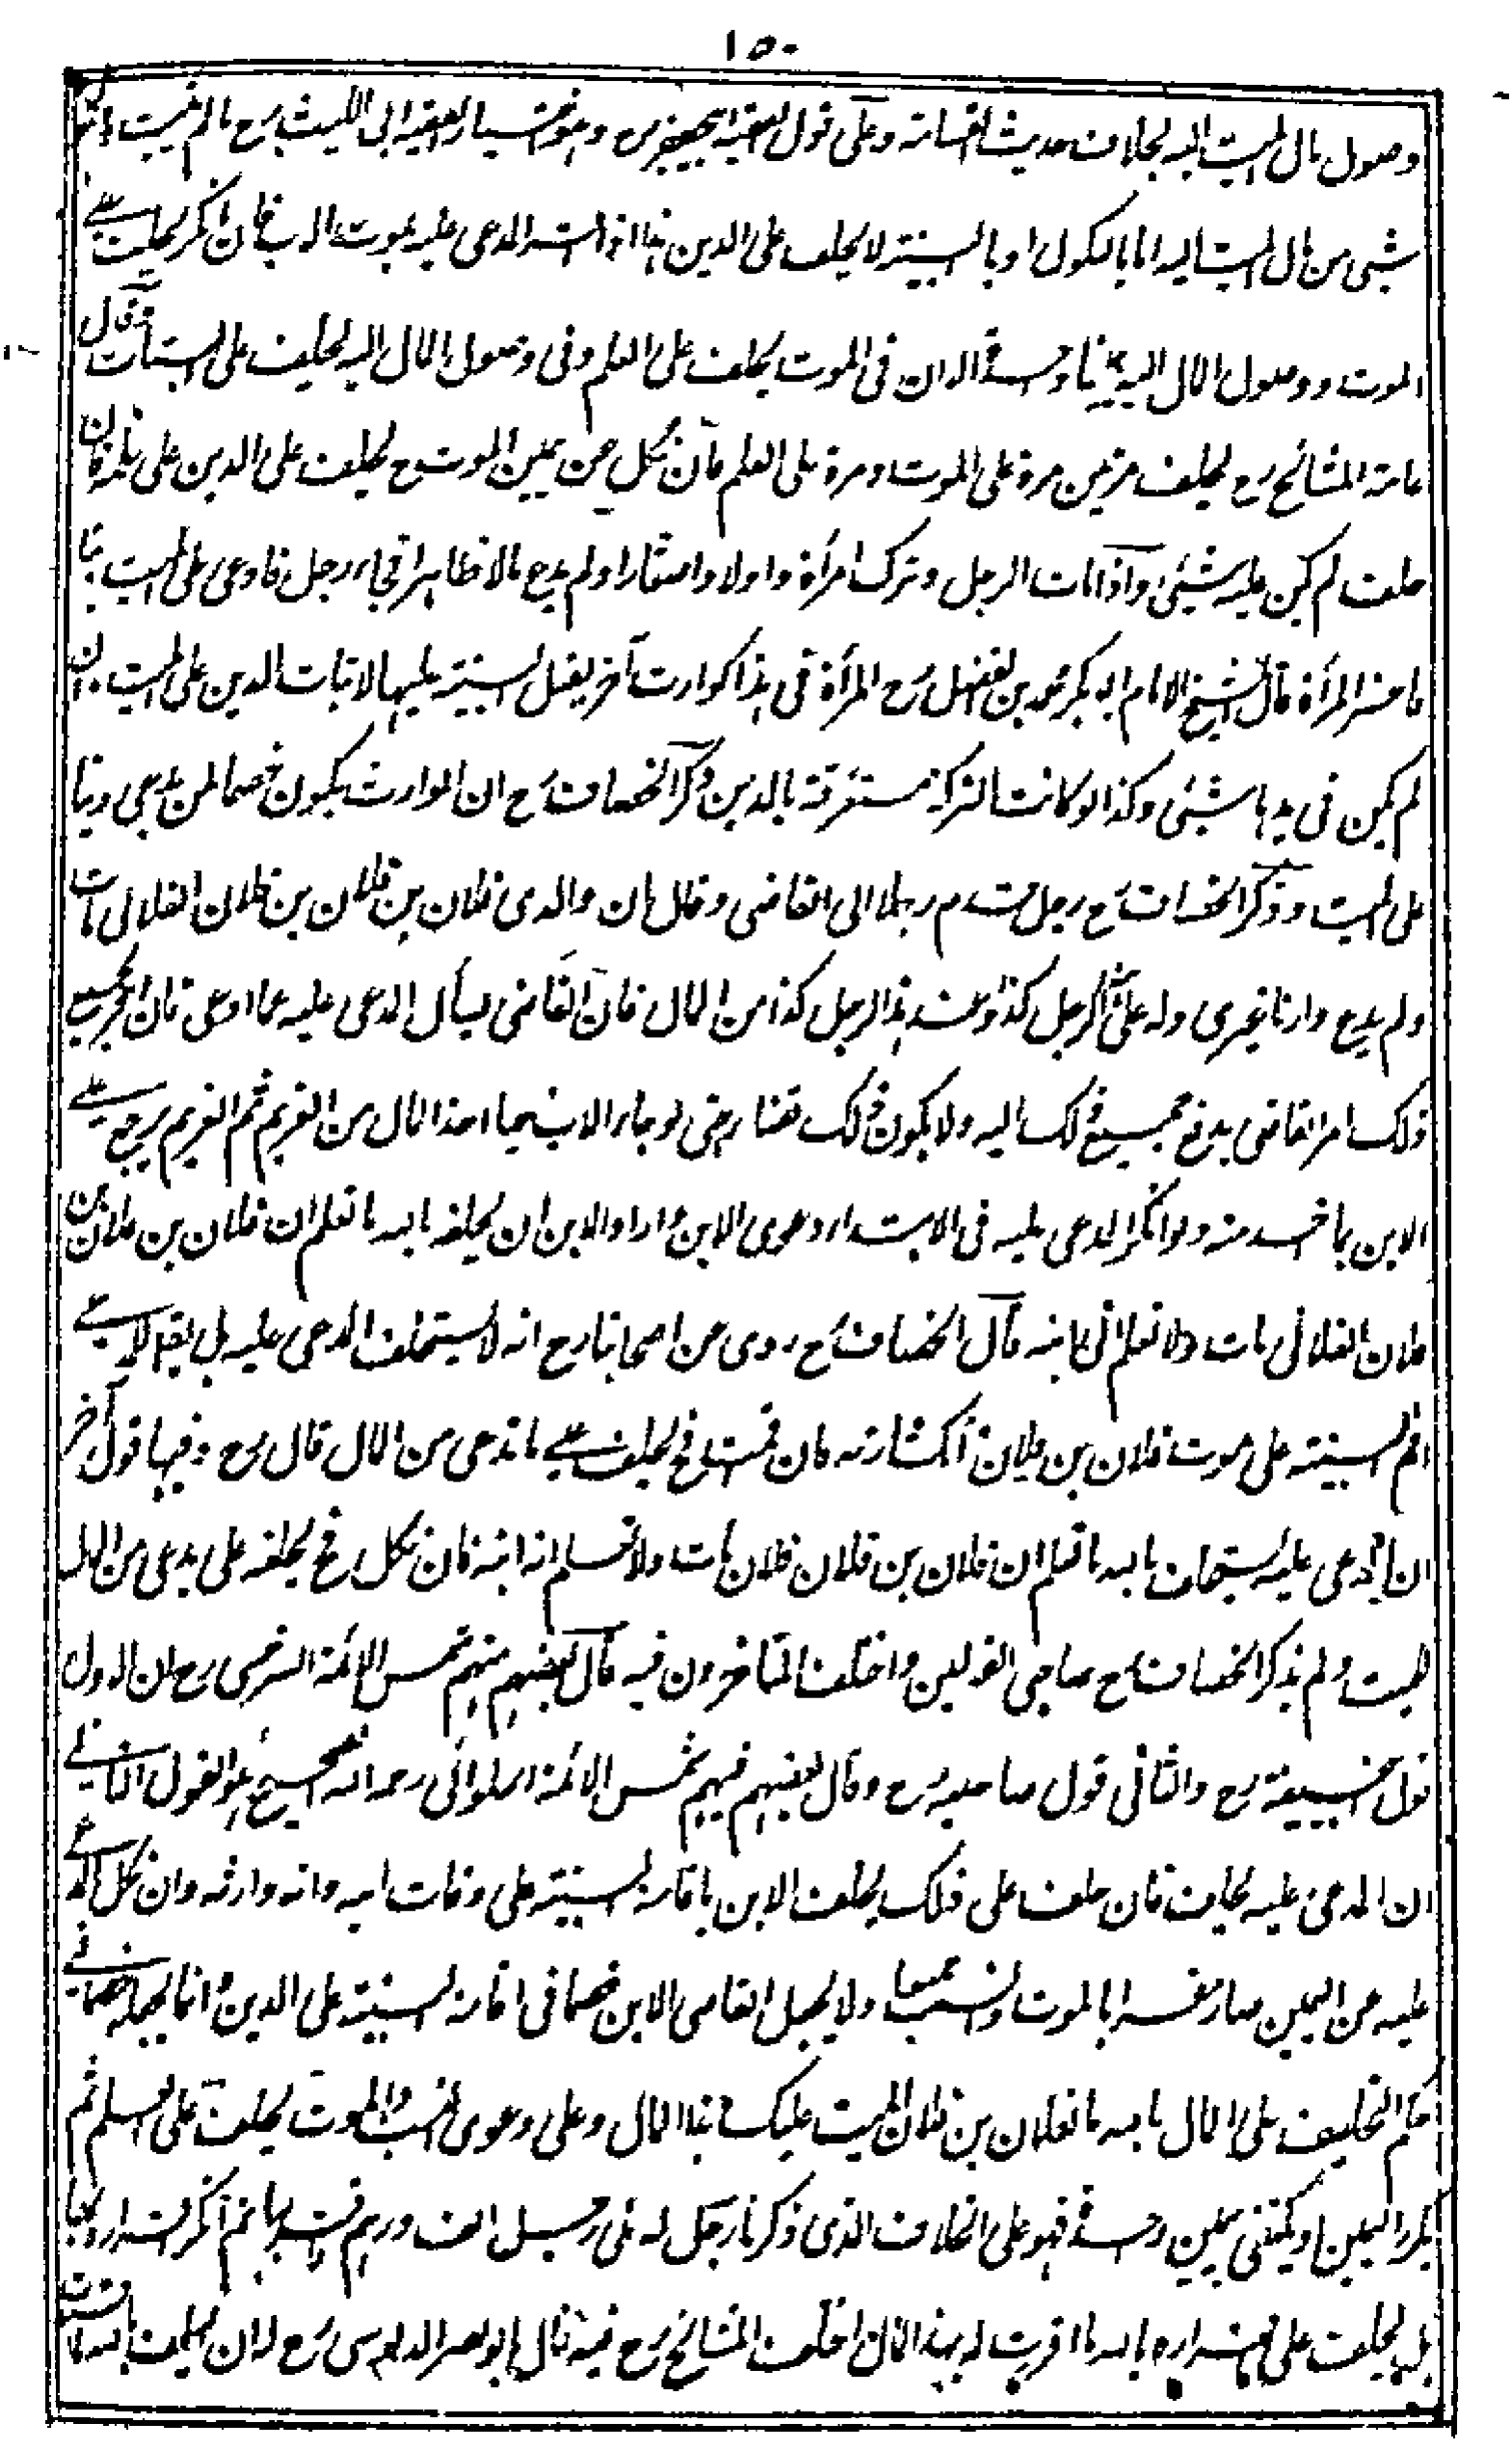 ١٥٠
وصول مال الميت اليه بخلاف حديث القسامة وعلى قول الفقيه ابى جعفر رح وهو اختيار الفقيه ابى الليث رح ما لم يثبت وصول
شئى من مال الميت اليه اما بالنكول او بالبينة لا يحلف على الدين هذا اذا اقر المدعى عليه بموت الاب فان انكر يحلف على
الموت ووصول المال اليه يمينا واحدة الا ان فى الموت يحلف على العلم وفى وصول المال اليه يحلف على البتات وقال
عامة المشائخ رح يحلف مرتين مرة على الموت ومرة على العلم فان نكل عن يمين الموت ح يحلف على الدين على علمه فان
حلف لم يكن عليه شئى واذا مات الرجل وترك امرأة واولادا صغارا ولم يدع مالا ظاهرا فجاء رجل فادعى على الميت دينا
فاحضر المرأة قال الشيخ الامام ابو بكر محمد بن الفضل رح المرأة فى هذا كوارث آخر يقبل البينة عليها لاثبات الدين على الميت وان
لم يكن فى يدها شئى وكذا لو كانت التركة مستغرقة بالدين ذكر الخصاف رح ان الوارث يكون خصما لمن يدعى دينا
على الميت وذكر الخصاف رح رجل قدم رجلا الى القاضى وقال ان والدى فلان بن فلان بن فلان الفلانى مات
ولم يدع وارثا غيرى وله على هذا الرجل كذا وعند هذا الرجل كذا من المال فان القاضى يسأل المدعى عليه عما ادعى فان اقر بجميع
ذلك امر القاضى بدفع جميع ذلك اليه ولا يكون ذلك قضاء حتى لو جاء الاب حيا اخذ المال من الغريم ثم الغريم يرجع على
الابن بما اخذ منه ولو انكر المدعى عليه فى الابتداء دعوى الابن واراد الابن ان يحلفه بالله ما تعلم ان فلان بن فلان بن
فلان الفلانى مات ولا تعلم انى ابنه قال الخصاف رح روى عن اصحابنا رح انه لا يستحلف المدعى عليه بل يقول للابن
اقم البينة على موت فلان بن فلان انك وارثه فان اقمت ح يحلف على ما تدعى من المال قال رح وفيها قول آخر
ان المدعى عليه يستحلف بالله ما تعلم ان فلان بن فلان فلان مات ولا تعلم انه ابنه فان نكل ح يحلفه على ما يدعى من المال
للميت ولم يذكر الخصاف رح صاحبى القولين واختلف المتأخرون فيه قال بعضهم منهم شمس الائمة السرخسى رح ان الاول
قول ابى حنيفة رح والثانى قول صاحبيه رح وقال بعضهم منهم شمس الائمة الحلوائى رحمه الله الصحيح هو القول الثانى
ان المدعى عليه يحلف فان حلف على ذلك يكلف الابن باقامة البينة على وفات ابيه وانه وارثه وان نكل المدعى
عليه عن اليمين صار مقرا بالموت والنسب جميعا ولا يجعل القاضى الابن خصما فى اقامة البينة على الدين وانما يجعله خصما فى
حكم التحليف على المال بالله ما لفلان بن فلان الميت عليك هذا المال وعلى دعوى النسب والموت يحلف على العلم ثم
يكرر اليمين او يكتفى بيمين واحدة فهو على الخلاف الذى ذكرنا رجل له على رجل الف درهم فاقر بها ثم انكر اقراره بها
هل يحلف على اقراره بالله ما اقررت له بهذا المال اختلف المشايخ رح فيه قال ابو نصر الدبوسى رح له ان يحلف بالله ما اقررت